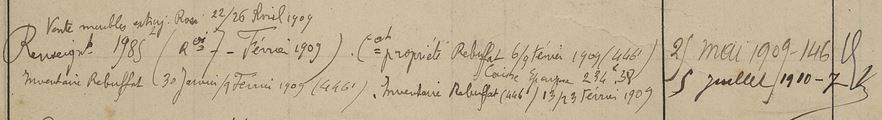 Vente meubles Rosa 22/26 Avril 1909
Renseignt 1985 (Roi 7 - Février 1909). (Cot propriété Rebuffat 6/9 février 1909 (4461) 25 mai 1909-146
Caisse Epargne 234 38
Inventaire Rebuffat (30 Janvier/9 Février 1909 (4461). Inventaire Rebuffat (4461) 13/23 Février 1909 5 juillet 1910-7